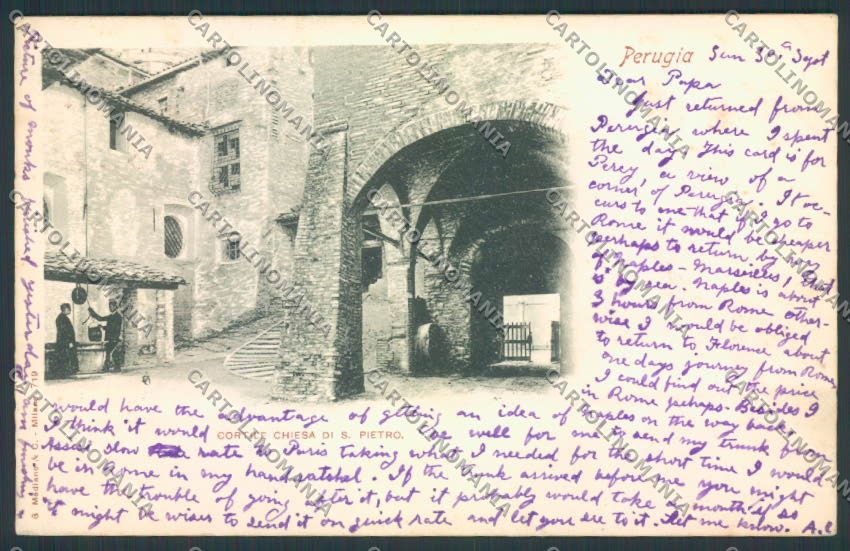 Perugia Sun 30th Sept
Dear Papa
Just returned from
Perugia, where I spent
the day. This card is for
Percy a view of a
corner of Perugia. It oc-
curs to me that if I go to
Rome it would be cheaper
perhaps to return by way
of Naples - Marseilles, that
is by sea. Naples is about
3 hours from Rome other-
wise I would be obliged
to return to Florence about
one days journey from Rome
I could find out the price
in Rome perhaps. Besides I
would have the advantage of getting an idea of Naples on the way back.
I think it would be well for me to send my trunk from
Assisi slow rate to Paris taking what I needed for the short time I would
be in Rome in my handsatchel. If the trunk arrived before me you might
have the trouble of going after it, but it probably would take a month if so
it might be wiser to send it on quick rate and let you see to it. Let me know. A.E
CORTILE CHIESA DI S. PIETRO.
picture of monks posted yesterday
G. Modiano & C. - Milano
CARTOLINOMANIA